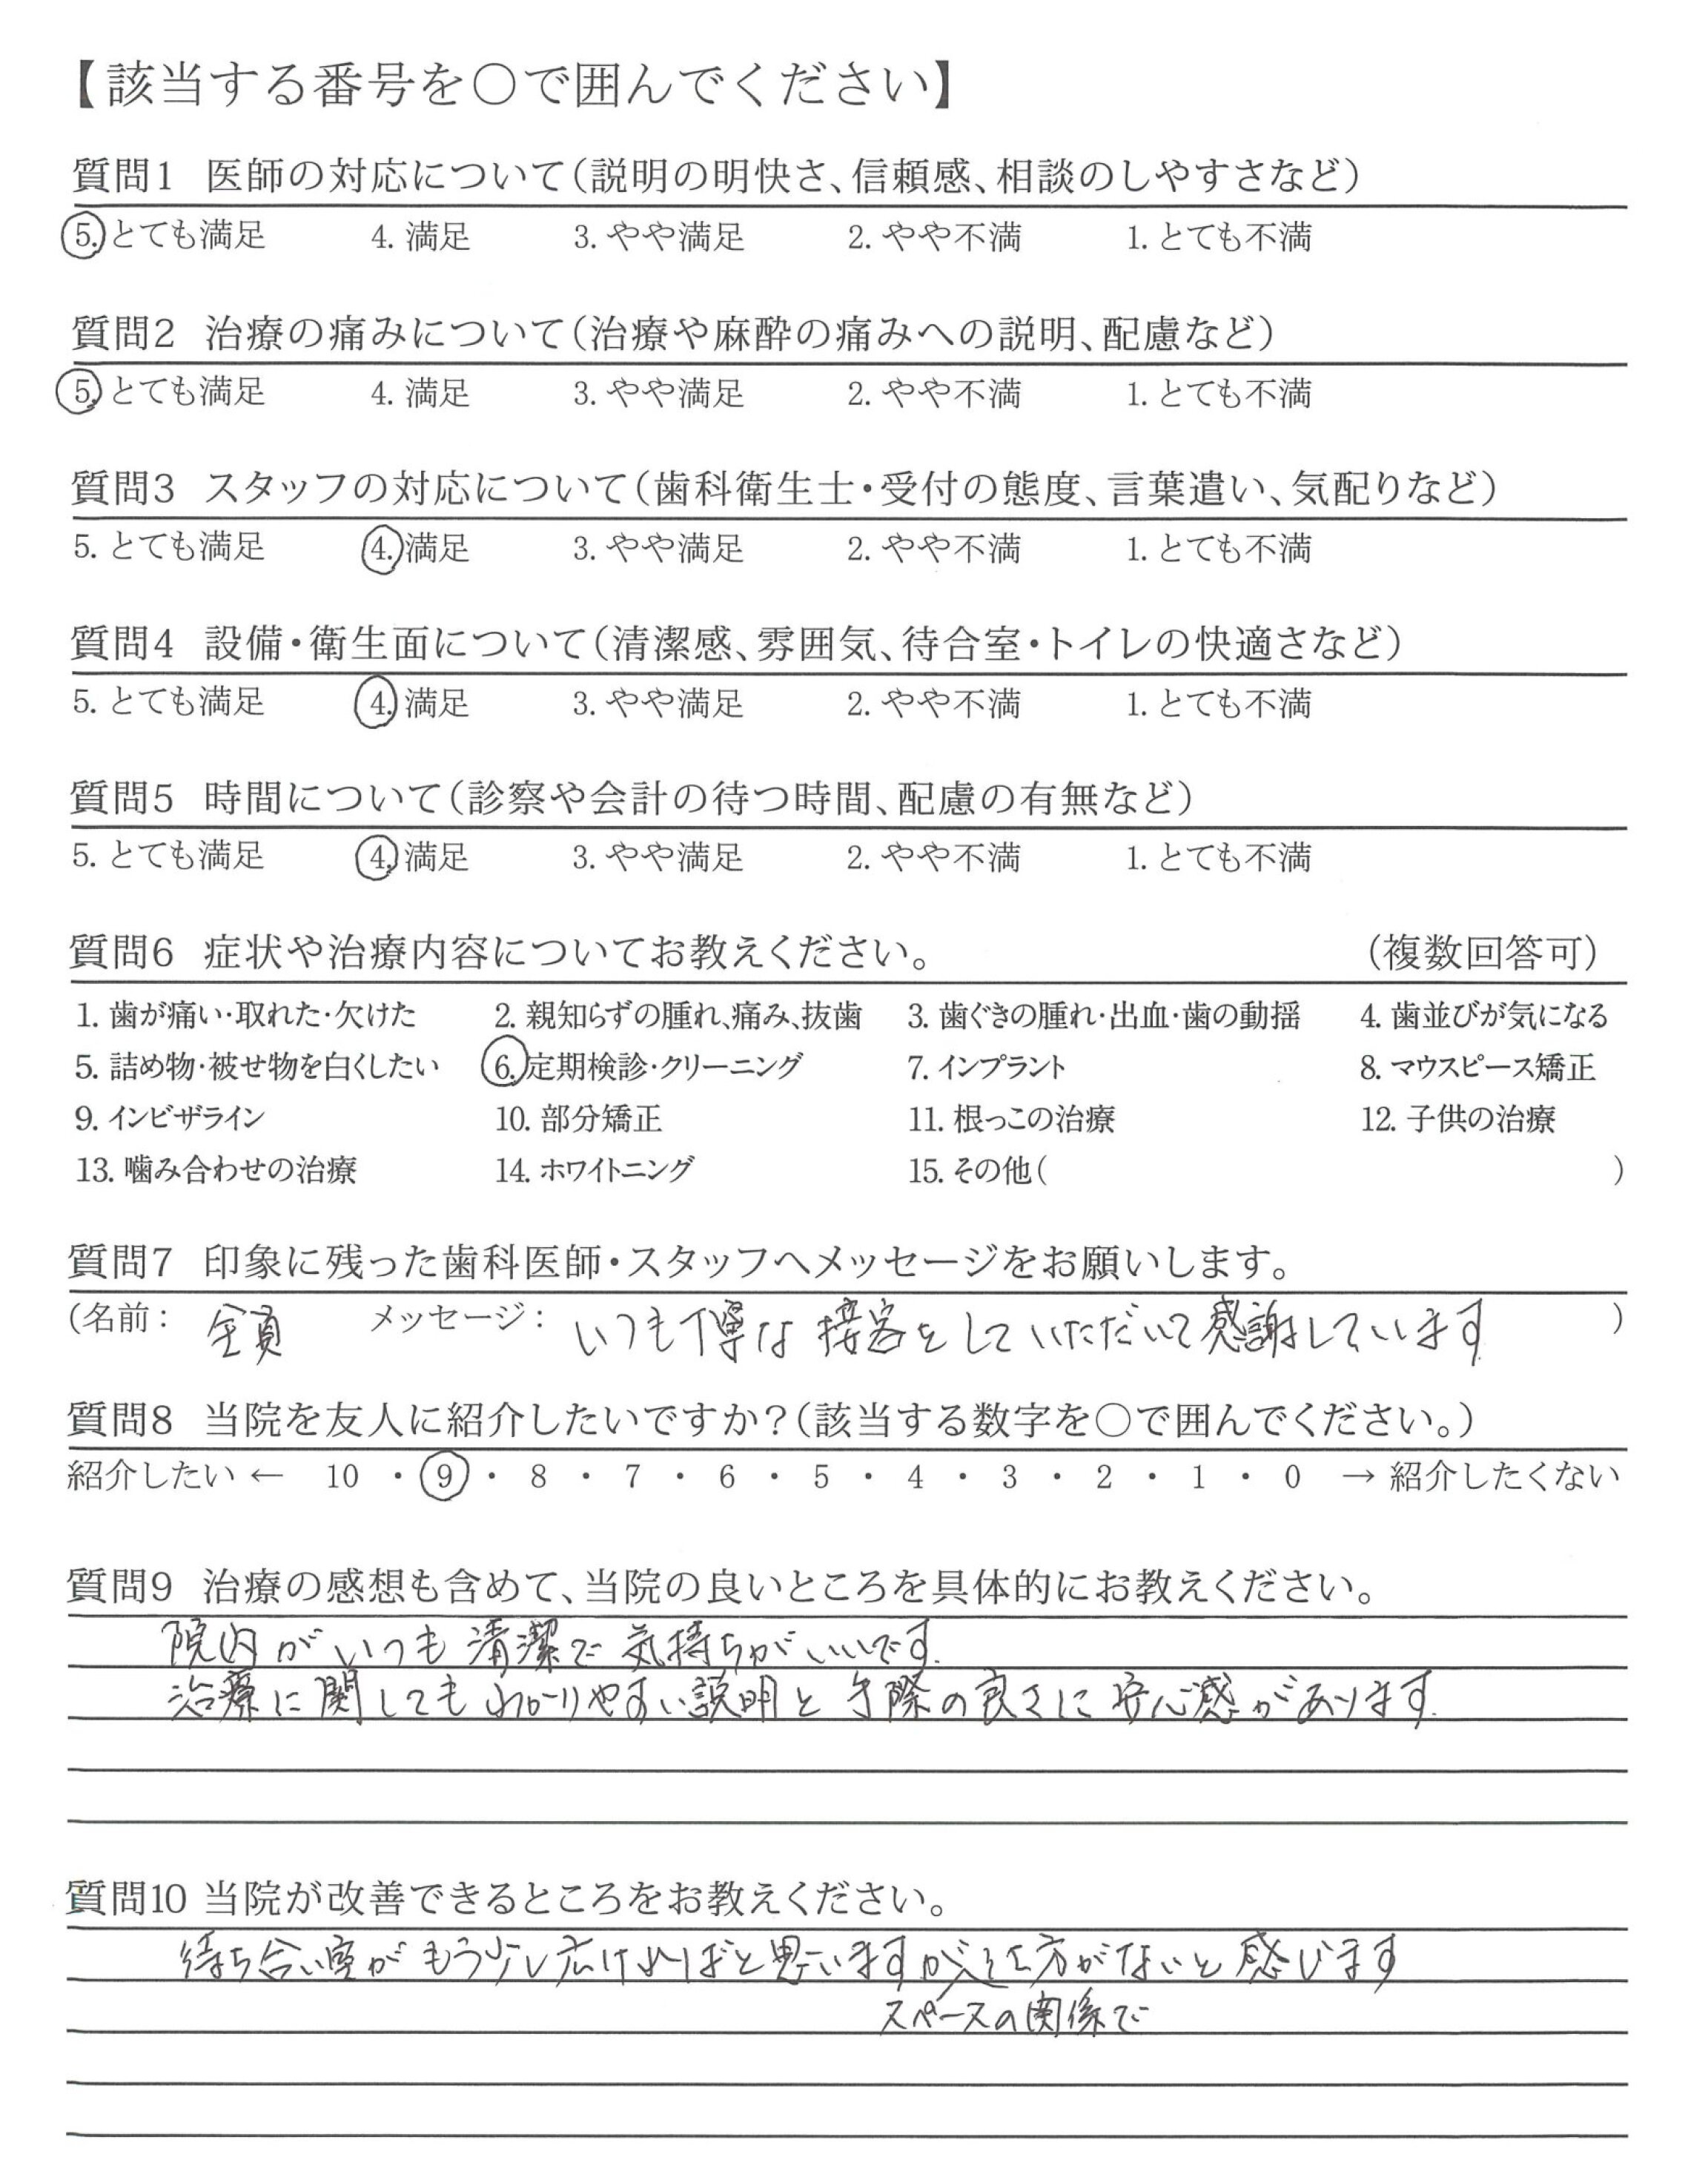 【該当する番号を○で囲んでください】
質問1 医師の対応について(説明の明快さ、信頼感、相談のしやすさなど)
5. とても満足 4. 満足 3. やや満足 2. やや不満 1. とても不満
質問2 治療の痛みについて(治療や麻酔の痛みへの説明、配慮など)
5. とても満足 4. 満足 3. やや満足 2. やや不満 1. とても不満
質問3 スタッフの対応について(歯科衛生士・受付の態度、言葉遣い、気配りなど)
5. とても満足 4. 満足 3. やや満足 2. やや不満 1. とても不満
質問4 設備・衛生面について(清潔感、雰囲気、待合室・トイレの快適さなど)
5. とても満足 4. 満足 3. やや満足 2. やや不満 1. とても不満
質問5 時間について(診察や会計の待つ時間、配慮の有無など)
5. とても満足 4. 満足 3. やや満足 2. やや不満 1. とても不満
質問6 症状や治療内容についてお教えください。 (複数回答可)
1. 歯が痛い・取れた・欠けた 2. 親知らずの腫れ、痛み、抜歯 3. 歯ぐきの腫れ・出血・歯の動揺 4. 歯並びが気になる
5. 詰め物・被せ物を白くしたい 6. 定期検診・クリーニング 7. インプラント 8. マウスピース矯正
9. インビザライン 10. 部分矯正 11. 根っこの治療 12. 子供の治療
13. 噛み合わせの治療 14. ホワイトニング 15. その他( )
質問7 印象に残った歯科医師・スタッフへメッセージをお願いします。
(名前: 全員 メッセージ: いつも丁寧な接客をしていただいて感謝しています )
質問8 当院を友人に紹介したいですか?(該当する数字を○で囲んでください。)
紹介したい ← 10 ・ 9 ・ 8 ・ 7 ・ 6 ・ 5 ・ 4 ・ 3 ・ 2 ・ 1 ・ 0 → 紹介したくない
質問9 治療の感想も含めて、当院の良いところを具体的にお教えください。
院内がいつも清潔で気持ちがいいです.
治療に関してもわかりやすい説明と手際の良さに安心感があります.
質問10 当院が改善できるところをお教えください。
待ち合い室がもう少し広ければと思いますが仕方がないと感じます
スペースの関係で